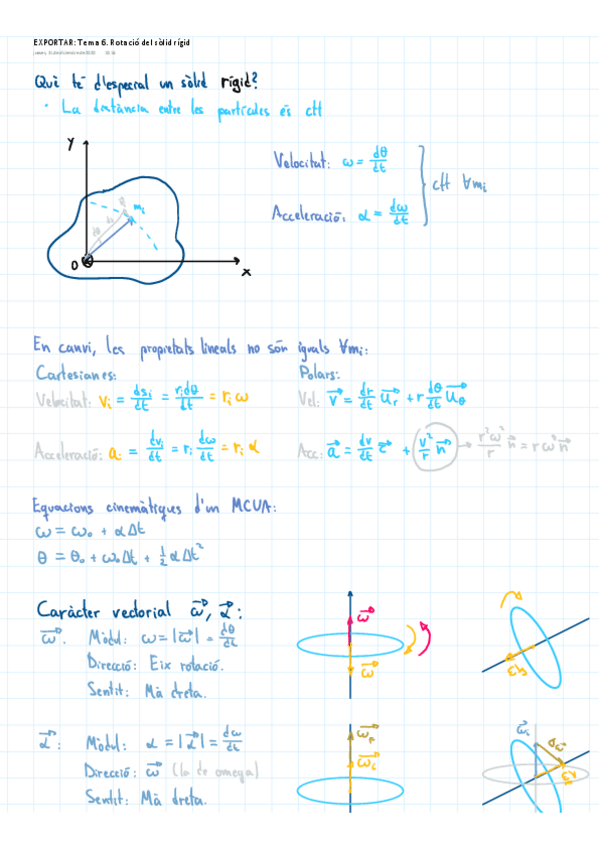 EXPORTAR: Tema 6. Rotació del sòlid rígid
Què té d'especial un sòlid rígid?
· La distància entre les partícules és ctt
Y
m_i
O
x
Velocitat: ω = dθ/dt
Acceleració: α = dω/dt
ctt ∀m_i
En canvi, les propietats lineals no són iguals ∀m_i:
Cartesianes:
Velocitat: v_i = ds_i/dt = r_i dθ/dt = r_i ω
Acceleració: a_i = dv_i/dt = r_i dω/dt = r_i α
Polars:
Vel: v⃗ = dr/dt u⃗_r + r dθ/dt u⃗_θ
Acc: a⃗ = dv/dt τ⃗ + v²/r n⃗ → r²ω²/r n⃗ = rω² n⃗
Equacions cinemàtiques d'un MCUA:
ω = ω₀ + αΔt
θ = θ₀ + ω₀Δt + ½αΔt²
Caràcter vectorial ω⃗, α⃗:
ω⃗. Mòdul: ω = |ω⃗| = dθ/dt
Direcció: Eix rotació.
Sentit: Mà dreta.
ω⃗
ω⃗
ω⃗
α⃗: Mòdul: α = |α⃗| = dω/dt
Direcció: ω⃗ (la de omega)
Sentit: Mà dreta.
ω⃗_f
ω⃗_i
ω⃗_i
Δω⃗